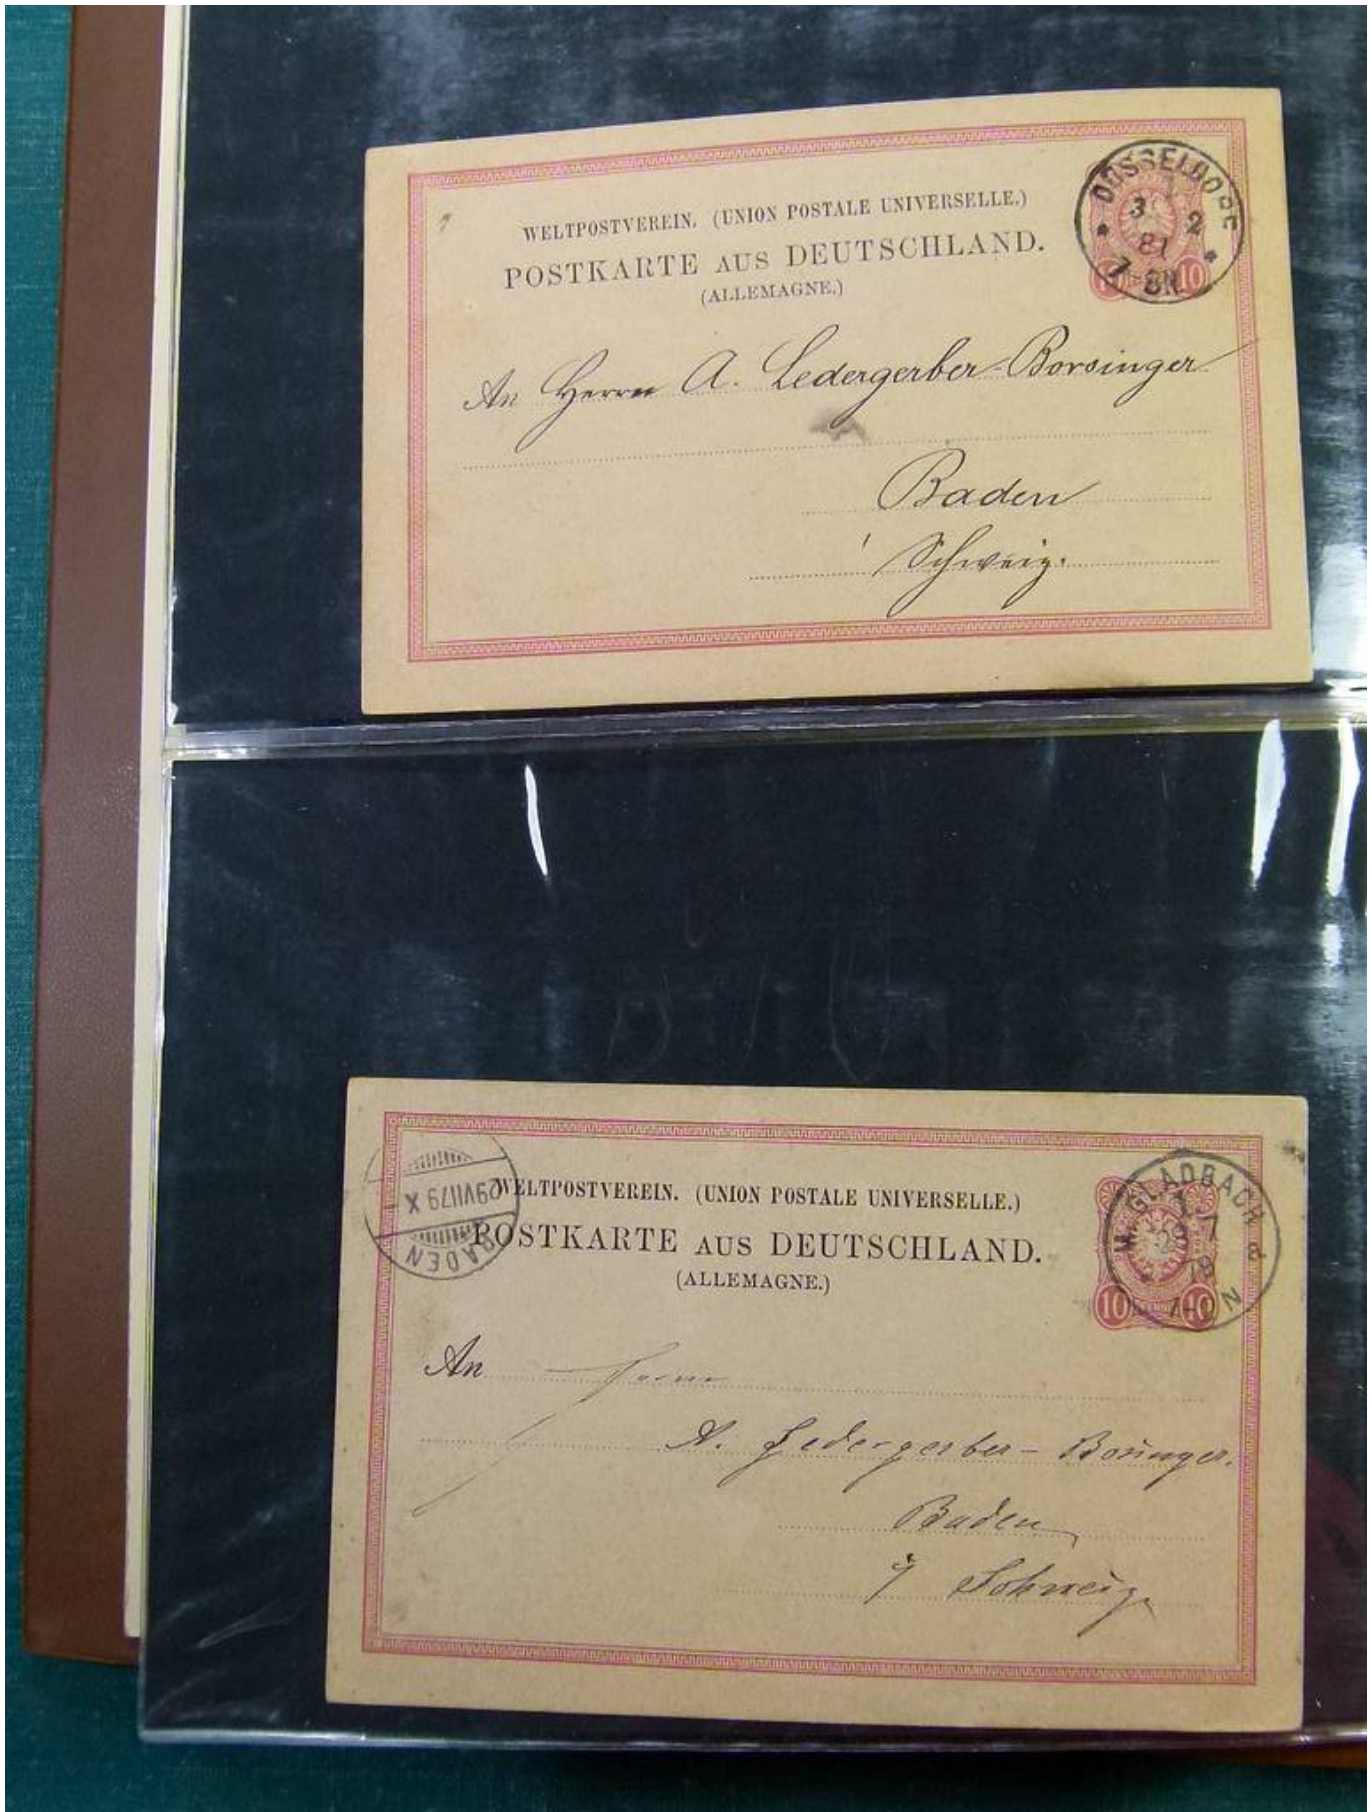 WELTPOSTVEREIN. (UNION POSTALE UNIVERSELLE.)
POSTKARTE AUS DEUTSCHLAND.
(ALLEMAGNE.)
DÜSSELDORF
3 2
81
7-8N.
10 10
An Herrn A. Ledergerber-Borsinger
Baden
Schweiz.
WELTPOSTVEREIN. (UNION POSTALE UNIVERSELLE.)
POSTKARTE AUS DEUTSCHLAND.
(ALLEMAGNE.)
29VII79 X
BADEN
M. GLADBACH
28 7
79
N
10 10
An Herrn
A. Ledergerber-Borsinger.
Baden
Schweiz